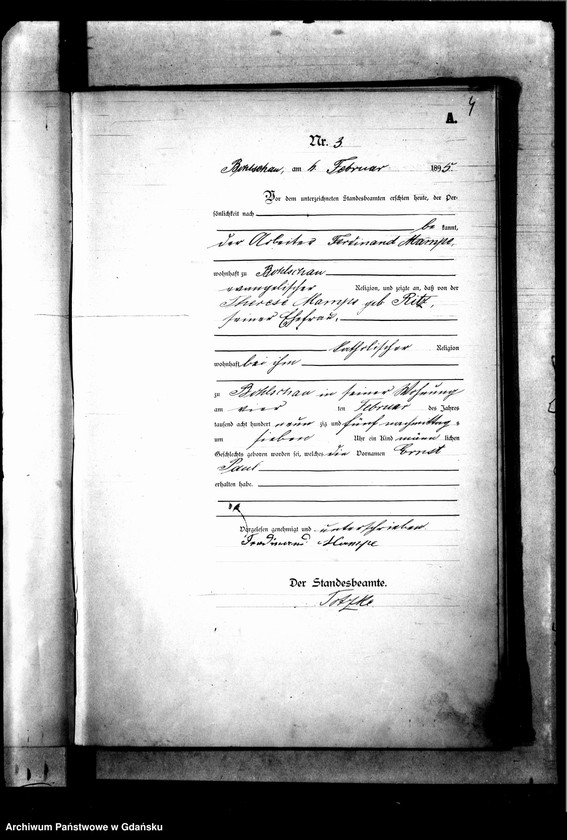 4
A.
Nr. 3
Bohlschau, am 4. Februar 1895.
Vor dem unterzeichneten Standesbeamten erschien heute, der Per-
sönlichkeit nach
be kannt,
der Arbeiter Ferdinand Mampe,
wohnhaft zu Bohlschau
evangelischer Religion, und zeigte an, daß von der
Therese Mampe geb Ritz,
seiner Ehefrau,
katholischer Religion
wohnhaft bei ihm
zu Bohlschau in seiner Wohnung
am vier ten Februar des Jahres
tausend acht hundert neun zig und fünf nachmittag s
um sieben Uhr ein Kind männ lichen
Geschlechts geboren worden sei, welches die Vornamen Ernst
Paul
erhalten habe.
Vorgelesen genehmigt und unterschrieben
Ferdinand Mampe
Der Standesbeamte.
Archiwum Państwowe w Gdańsku